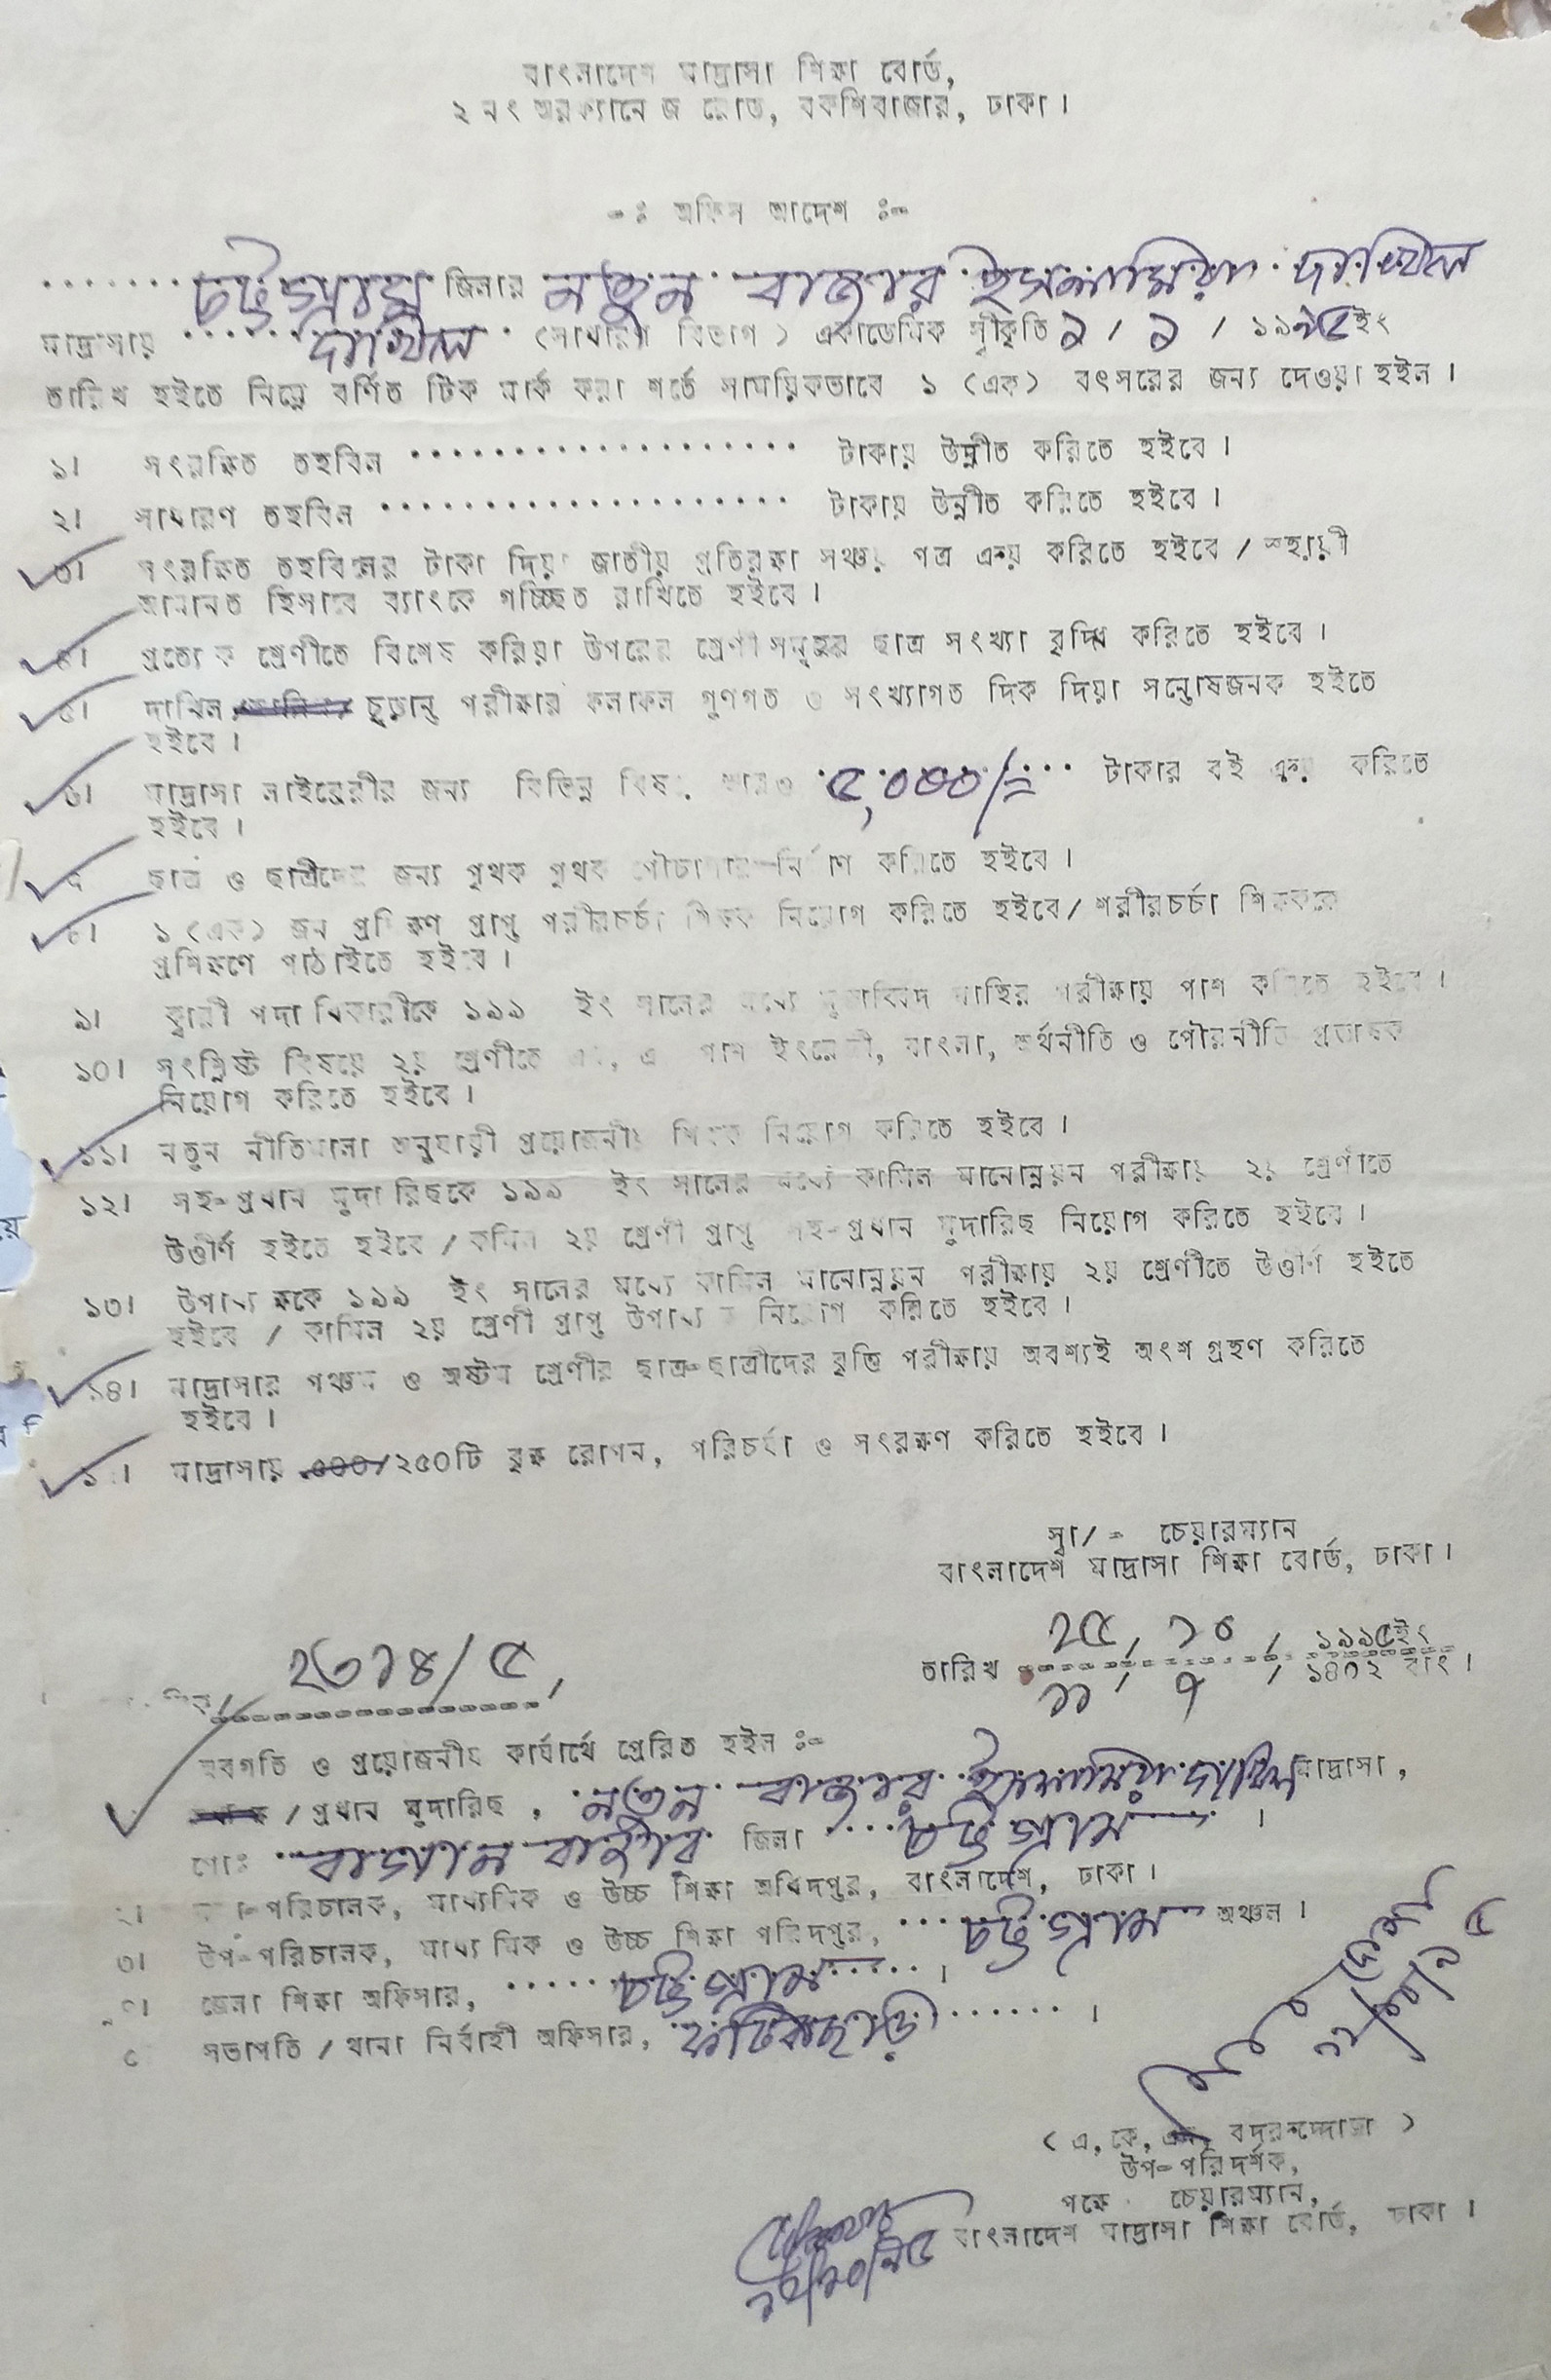 বাংলাদেশ মাদ্রাসা শিক্ষা বোর্ড,
২ নং অরফ্যানেজ রোড, বকশিবাজার, ঢাকা।
-ঃ অফিস আদেশ ঃ-
....... চট্টগ্রাম জিলার নতুন বাজার ইসলামিয়া দাখিল
মাদ্রাসায় ...... দাখিল (সাধারণ বিভাগ) একাডেমিক স্বীকৃতি ১ / ১ / ১৯৯৫ইং
তারিখ হইতে নিম্নে বর্ণিত টিক মার্ক করা শর্তে সাময়িকভাবে ১ (এক) বৎসরের জন্য দেওয়া হইল।
১। সংরক্ষিত তহবিল .................... টাকায় উন্নীত করিতে হইবে।
২। সাধারণ তহবিল .................... টাকায় উন্নীত করিতে হইবে।
৩। সংরক্ষিত তহবিলের টাকা দিয়া জাতীয় প্রতিরক্ষা সঞ্চয় পত্র ক্রয় করিতে হইবে / স্হায়ী
আমানত হিসাবে ব্যাংকে গচ্ছিত রাখিতে হইবে।
৪। প্রত্যেক শ্রেণীতে বিশেষ করিয়া উপরের শ্রেণীসমূহের ছাত্র সংখ্যা বৃদ্ধি করিতে হইবে।
৫। দাখিল চূড়ান্ত পরীক্ষার ফলাফল গুণগত ও সংখ্যাগত দিক দিয়া সন্তোষজনক হইতে
হইবে।
৬। মাদ্রাসা লাইব্রেরীর জন্য বিভিন্ন বিষয়ে আরও ৫,০০০/= টাকার বই ক্রয় করিতে
হইবে।
৭ ছাত্র ও ছাত্রীদের জন্য পৃথক পৃথক শৌচাগার নির্মাণ করিতে হইবে।
৮। ১ (এক) জন প্রশিক্ষণ প্রাপ্ত শরীরচর্চা শিক্ষক নিয়োগ করিতে হইবে/ শরীরচর্চা শিক্ষককে
প্রশিক্ষণে পাঠাইতে হইবে।
৯। ক্বারী পদাধিকারীকে ১৯৯ ইং সালের মধ্যে মুজাব্বিদ মাহির পরীক্ষায় পাশ করিতে হইবে।
১০। সংশ্লিষ্ট বিষয়ে ২য় শ্রেণীতে এম, এ পাশ ইংরেজী, বাংলা, অর্থনীতি ও পৌরনীতি প্রভাষক
নিয়োগ করিতে হইবে।
১১। নতুন নীতিমালা অনুযায়ী প্রয়োজনীয় শিক্ষক নিয়োগ করিতে হইবে।
১২। সহ-প্রধান মুদারিছকে ১৯৯ ইং সালের মধ্যে কামিল মানোন্নয়ন পরীক্ষায় ২য় শ্রেণীতে
উত্তীর্ণ হইতে হইবে / কামিল ২য় শ্রেণী প্রাপ্ত সহ-প্রধান মুদারিছ নিয়োগ করিতে হইবে।
১৩। উপাধ্যক্ষকে ১৯৯ ইং সালের মধ্যে কামিল মানোন্নয়ন পরীক্ষায় ২য় শ্রেণীতে উত্তীর্ণ হইতে
হইবে / কামিল ২য় শ্রেণী প্রাপ্ত উপাধ্যক্ষ নিয়োগ করিতে হইবে।
১৪। মাদ্রাসার পঞ্চম ও অষ্টম শ্রেণীর ছাত্র-ছাত্রীদের বৃত্তি পরীক্ষায় অবশ্যই অংশ গ্রহণ করিতে
হইবে।
১৫। মাদ্রাসায় ৫০০/২৫০টি বৃক্ষ রোপন, পরিচর্যা ও সংরক্ষণ করিতে হইবে।
স্বা/= চেয়ারম্যান
বাংলাদেশ মাদ্রাসা শিক্ষা বোর্ড, ঢাকা।
২৩১৪/৫,
তারিখ ২৫, ১০ / ১৯৯৫ইং
১১ / ৭ / ১৪০২ বাং।
অবগতি ও প্রয়োজনীয় কার্যার্থে প্রেরিত হইল ঃ-
/ প্রধান মুদারিছ, নতুন বাজার ইসলামিয়া দাখিল মাদ্রাসা,
পোঃ বাগান বাজার জিলা .... চট্টগ্রাম ।
২। মহা-পরিচালক, মাধ্যমিক ও উচ্চ শিক্ষা অধিদপ্তর, বাংলাদেশ, ঢাকা।
৩। উপ-পরিচালক, মাধ্যমিক ও উচ্চ শিক্ষা পরিদপ্তর, ... চট্টগ্রাম অঞ্চল।
৪। জেলা শিক্ষা অফিসার, ...... চট্টগ্রাম ..... ।
৫ সভাপতি / থানা নির্বাহী অফিসার, ফটিকছড়ি ...... ।
(এ, কে, এম, বদরুদ্দোজা)
উপ-পরিদর্শক,
পক্ষে চেয়ারম্যান,
বাংলাদেশ মাদ্রাসা শিক্ষা বোর্ড, ঢাকা।